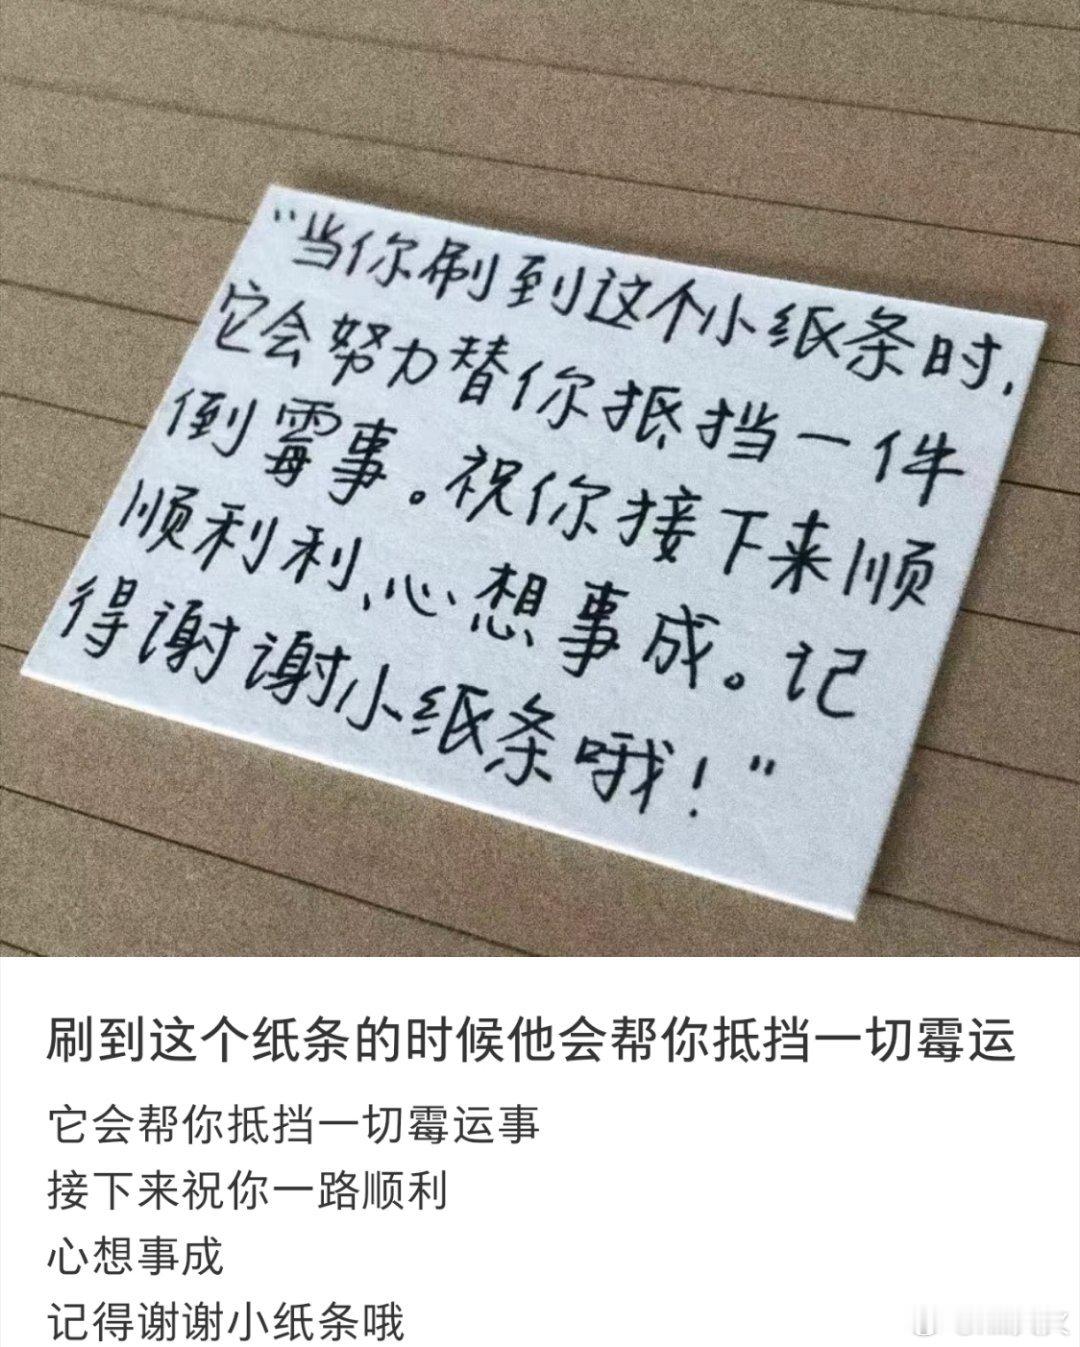 “当你刷到这个小纸条时,
它会努力替你抵挡一件
倒霉事。祝你接下来顺
顺利利、心想事成。记
得谢谢小纸条哦!”
刷到这个纸条的时候他会帮你抵挡一切霉运
它会帮你抵挡一切霉运事
接下来祝你一路顺利
心想事成
记得谢谢小纸条哦